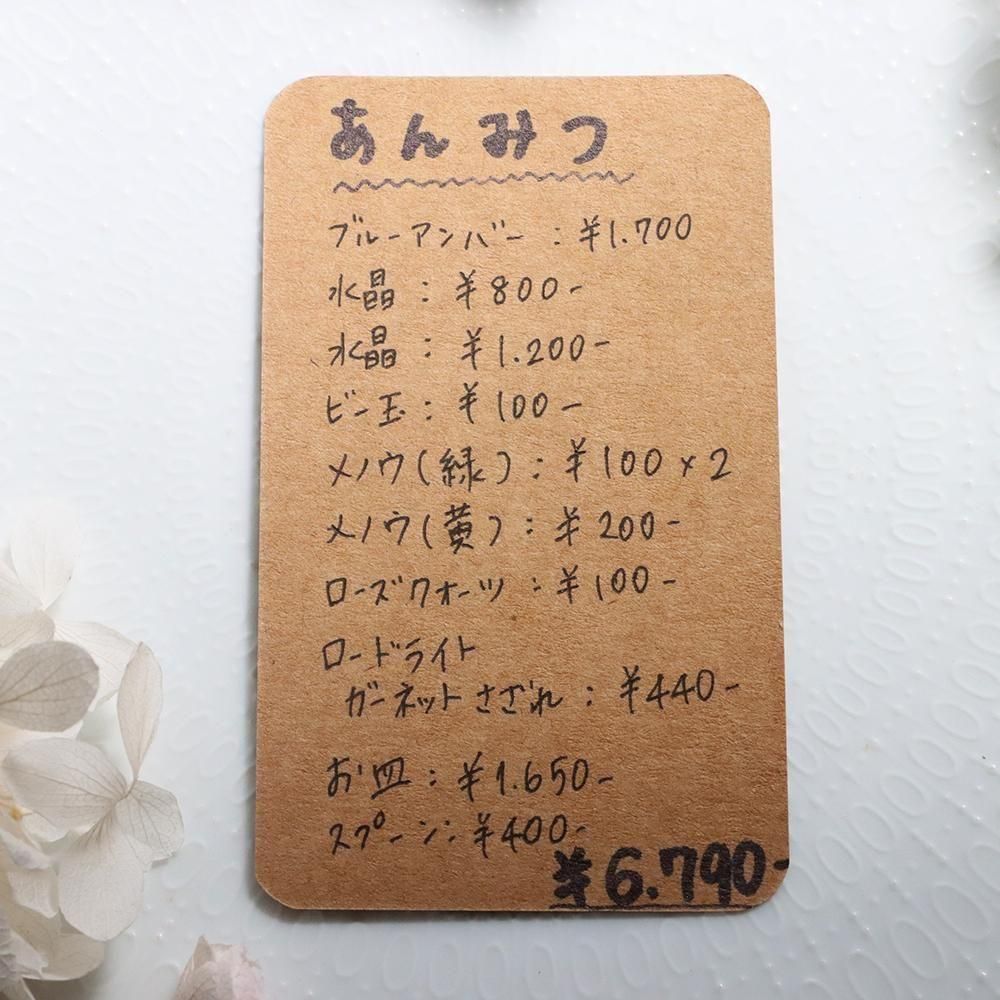 あんみつ
ブルーアンバー：¥1.700
水晶：¥800-
水晶：¥1.200-
ビー玉：¥100-
メノウ(緑)：¥100×2
メノウ(黄)：¥200-
ローズクォーツ：¥100-
ロードライト
ガーネットさざれ：¥440-
お皿：¥1.650-
スプーン：¥400-
¥6.790-